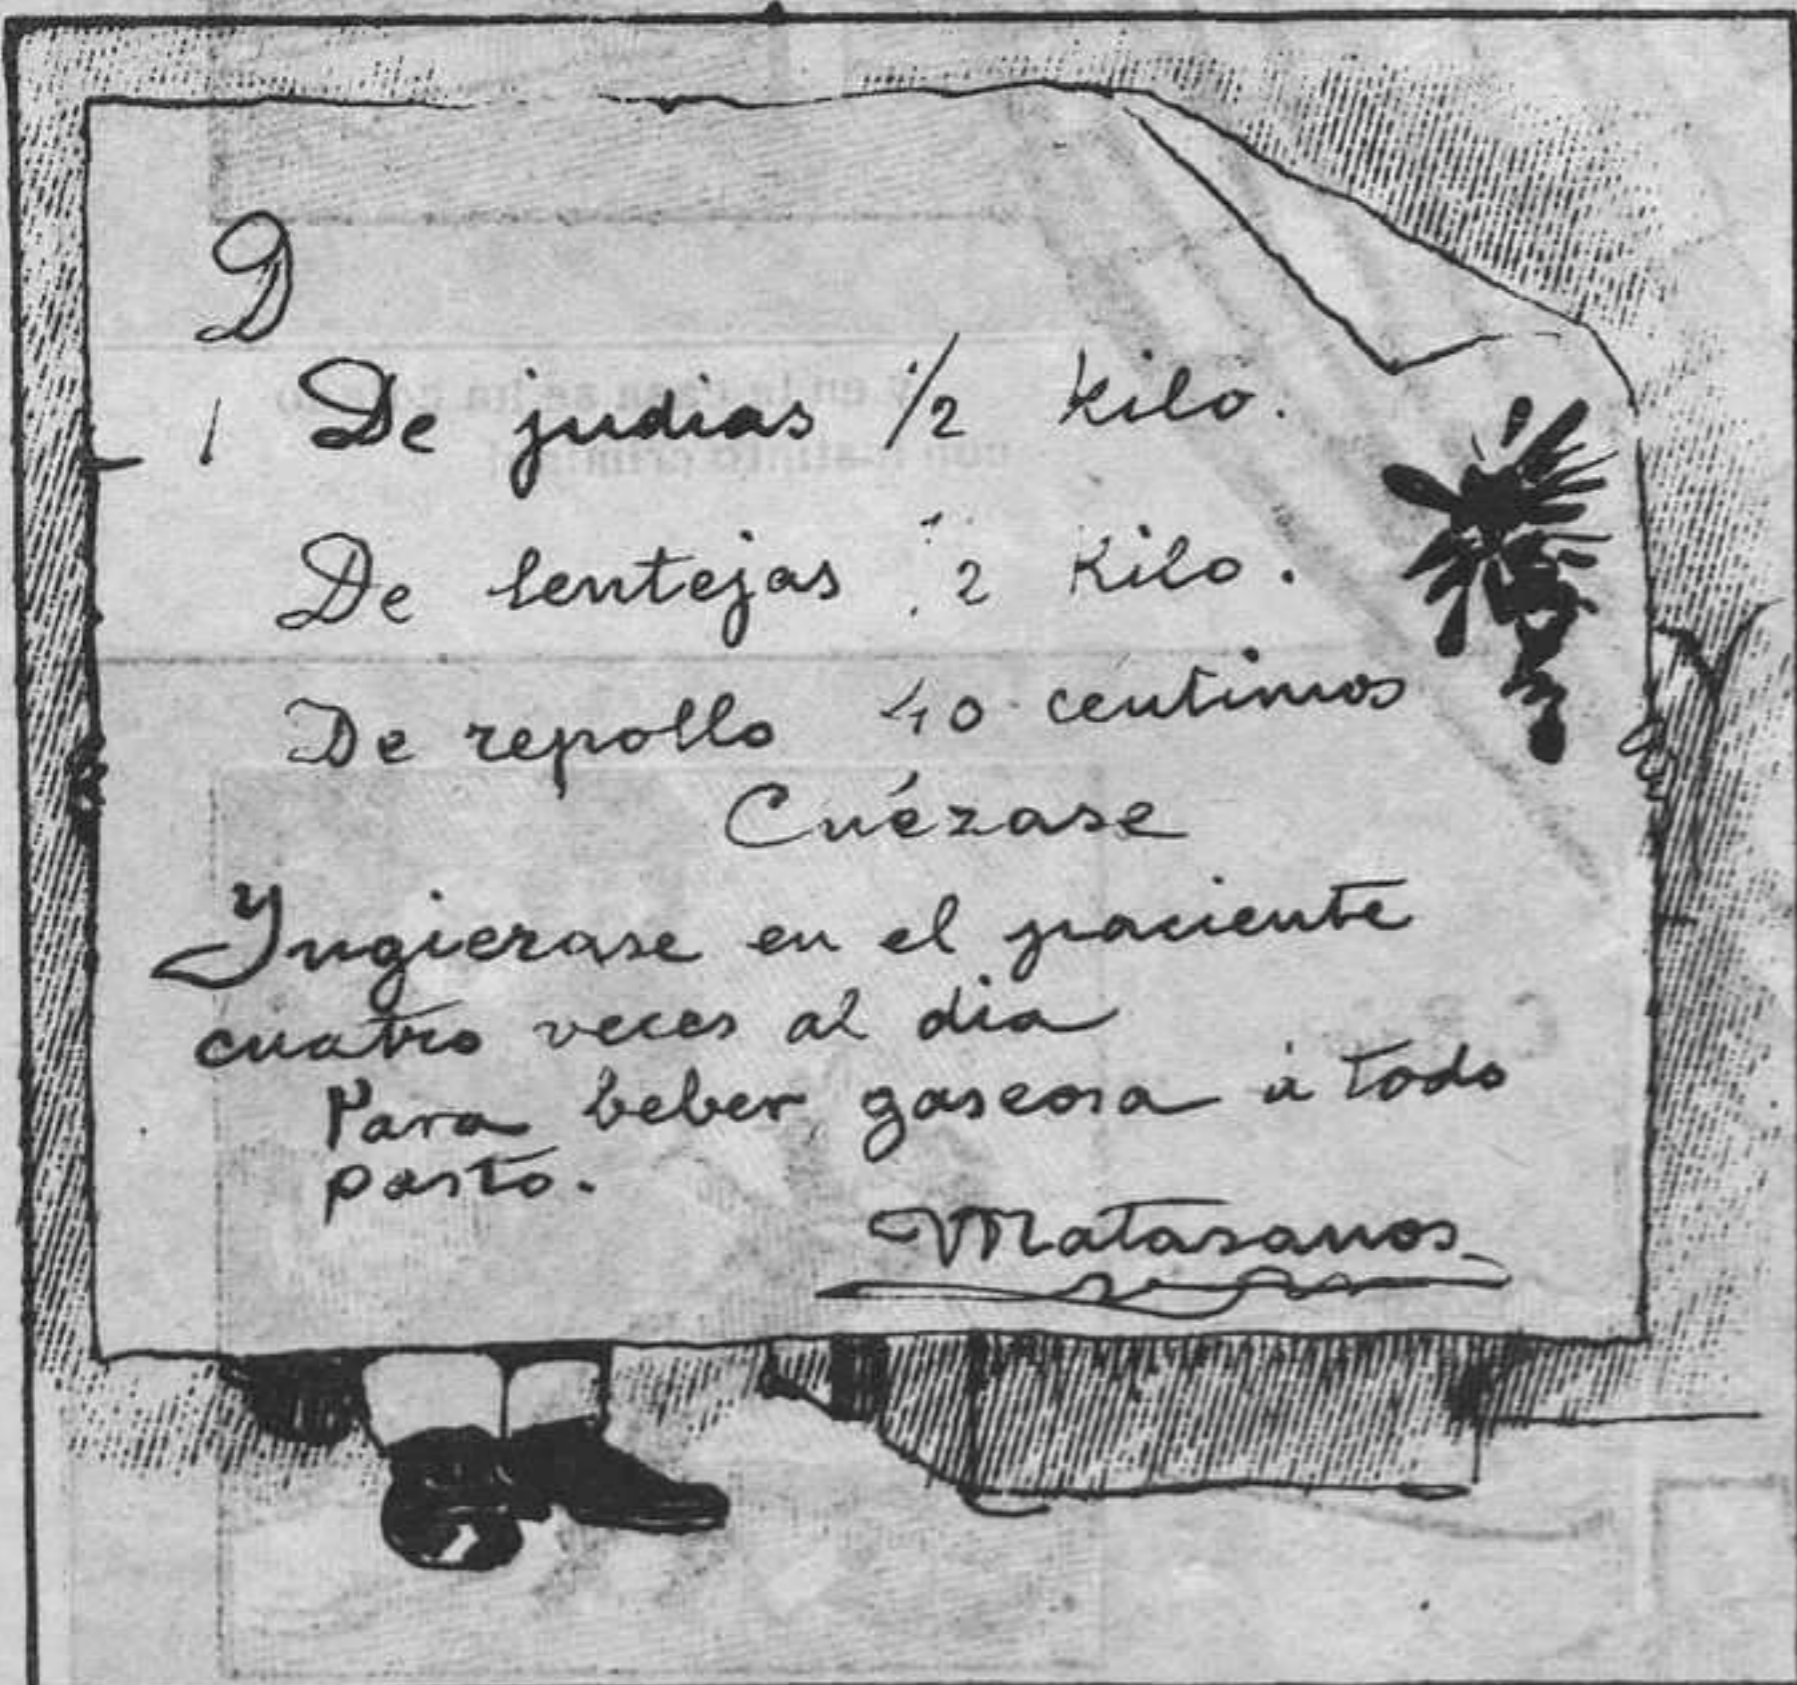 D
De judias 1/2 kilo.
De lentejas 1/2 Kilo.
De repollo 40 centimos
Cuézase
Yngierase en el paciente
cuatro veces al dia
Para beber gaseosa à todo
pasto.
Matasanos